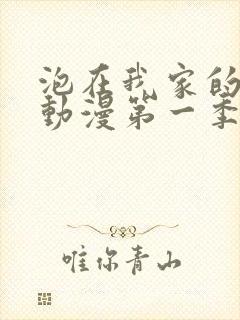 泡在我家的
動漫第一季
唯你青山